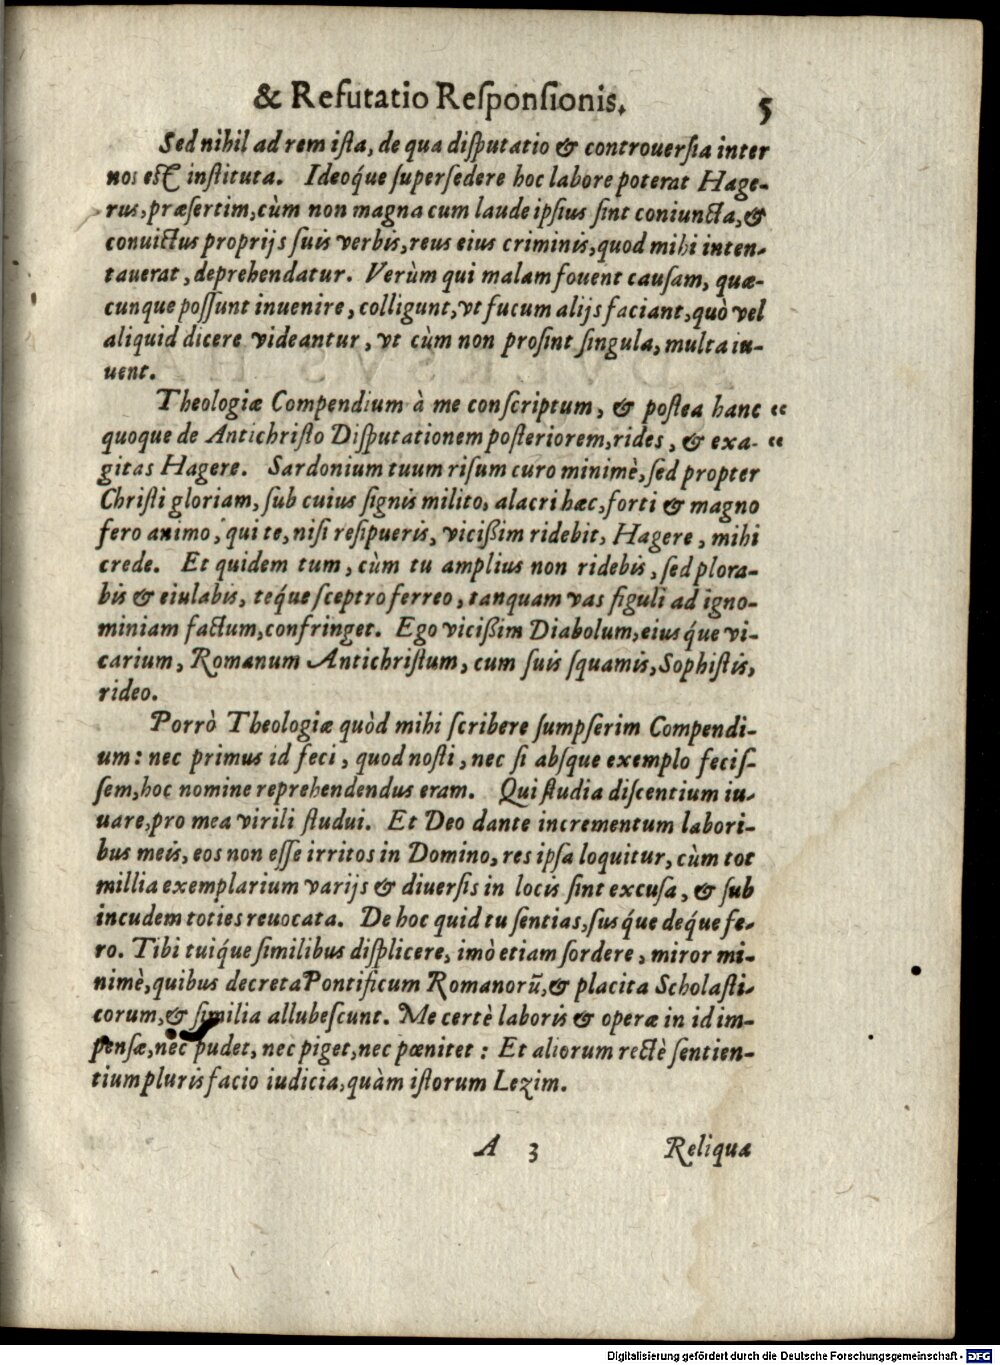 & Refutatio Reſponſionis. 5
Sed nihil ad rem iſta, de qua diſputatio & controuerſia inter
nos eſt inſtituta. Ideoq́ue ſuperſedere hoc labore poterat Hage-
rus, præſertim, cùm non magna cum laude ipſius ſint coniuncta, &
conuictus proprijs ſuis verbis, reus eius criminis, quod mihi inten-
tauerat, deprehendatur. Verùm qui malam fouent cauſam, quæ-
cunque poſſunt inuenire, colligunt, vt fucum alijs faciant, quò vel
aliquid dicere videantur, vt cùm non proſint ſingula, multa iu-
uent.
Theologiæ Compendium à me conſcriptum, & poſtea hanc “
quoque de Antichriſto Diſputationem poſteriorem, rides, & exa- “
gitas Hagere. Sardonium tuum riſum curo minimè, ſed propter
Chriſti gloriam, ſub cuius ſignis milito, alacri hæc, forti & magno
fero animo, qui te, niſi reſipueris, vicißim ridebit, Hagere, mihi
crede. Et quidem tum, cùm tu amplius non ridebis, ſed plora-
bis & eiulabis, teq́ue ſceptro ferreo, tanquam vas figuli ad igno-
miniam factum, confringet. Ego vicißim Diabolum, eiusq́ue vi-
carium, Romanum Antichriſtum, cum ſuis ſquamis, Sophiſtis,
rideo.
Porrò Theologiæ quòd mihi ſcribere ſumpſerim Compendi-
um: nec primus id feci, quod noſti, nec ſi abſque exemplo feciſ-
ſem, hoc nomine reprehendendus eram. Qui ſtudia diſcentium iu-
uare, pro mea virili ſtudui. Et Deo dante incrementum labori-
bus meis, eos non eſſe irritos in Domino, res ipſa loquitur, cùm tot
millia exemplarium varijs & diuerſis in locis ſint excuſa, & ſub
incudem toties reuocata. De hoc quid tu ſentias, ſusq́ue deq́ue fe-
ro. Tibi tuiq́ue ſimilibus diſplicere, imò etiam ſordere, miror mi-
nimè, quibus decreta Pontificum Romanorũ, & placita Scholaſti-
corum, & ſimilia allubeſcunt. Me certè laboris & operæ in id im-
penſæ, nec pudet, nec piget, nec pœnitet: Et aliorum rectè ſentien-
tium pluris facio iudicia, quàm iſtorum Lezim.
A 3 Reliqua
Digitalisierung gefördert durch die Deutsche Forschungsgemeinschaft - DFG